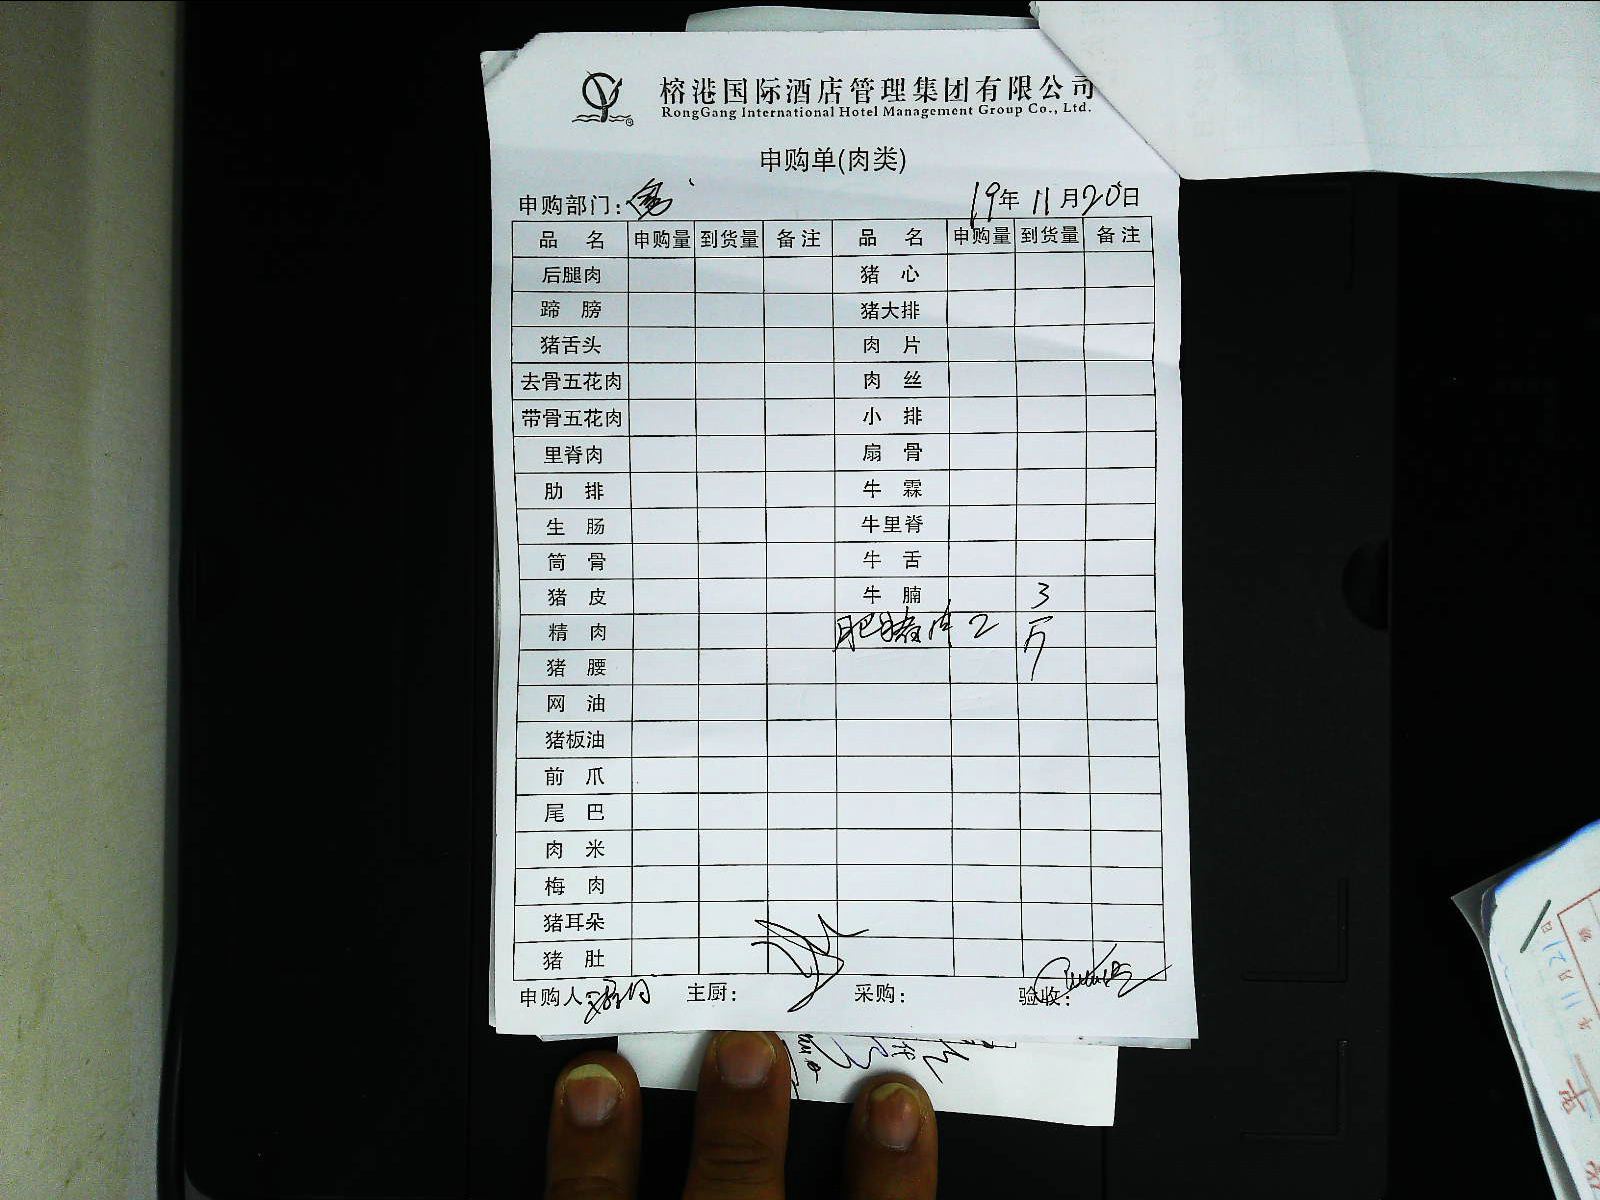 榕港国际酒店管理集团有限公司
RongGang International Hotel Management Group Co., Ltd.
申购单(肉类)
申购部门: 19年 11月20日
品 名 申购量 到货量 备注 品 名 申购量 到货量 备注
后腿肉 猪 心
蹄 膀 猪大排
猪舌头 肉 片
去骨五花肉 肉 丝
带骨五花肉 小 排
里脊肉 扇 骨
肋 排 牛 霖
生 肠 牛里脊
筒 骨 牛 舌
猪 皮 牛 腩 3
精 肉 肥猪肉 2 斤
猪 腰
网 油
猪板油
前 爪
尾 巴
肉 米
梅 肉
猪耳朵
猪 肚
申购人: 主厨: 采购: 验收: